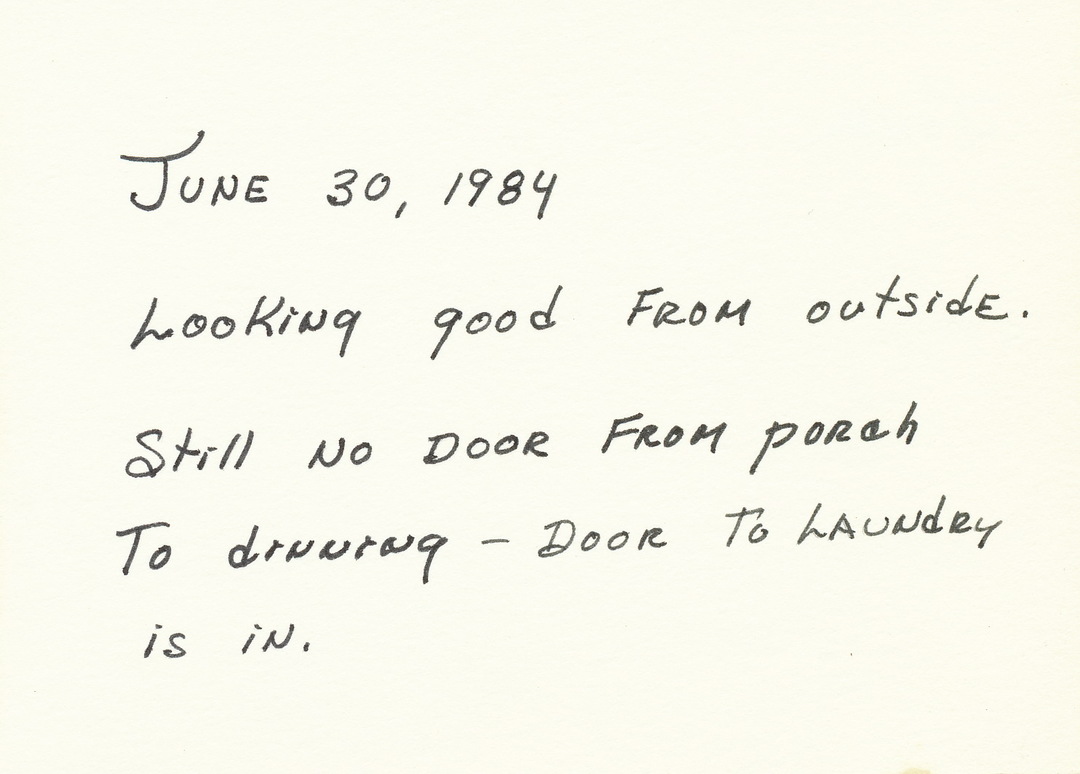 June 30, 1984
Looking good from outside.
Still no door from porch
To dinning - Door to Laundry
is in.